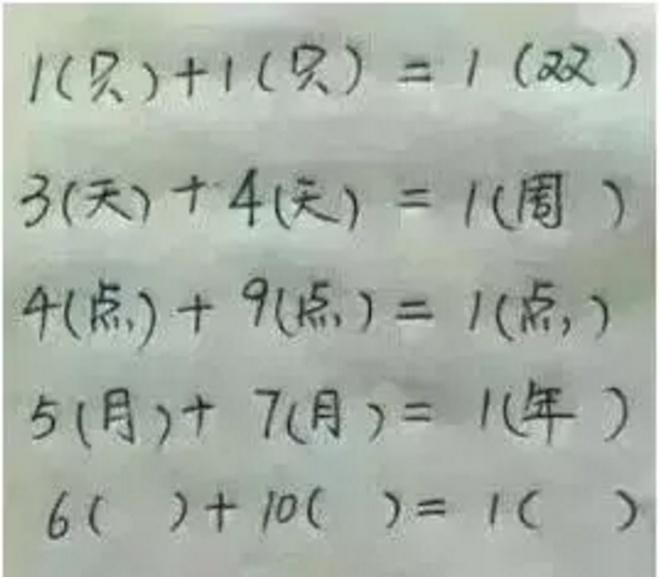 1(只)+1(只) = 1(双)
3(天)+4(天) = 1(周 )
4(点)+9(点) = 1(点)
5(月)+7(月) = 1(年 )
6( )+10( )= 1( )